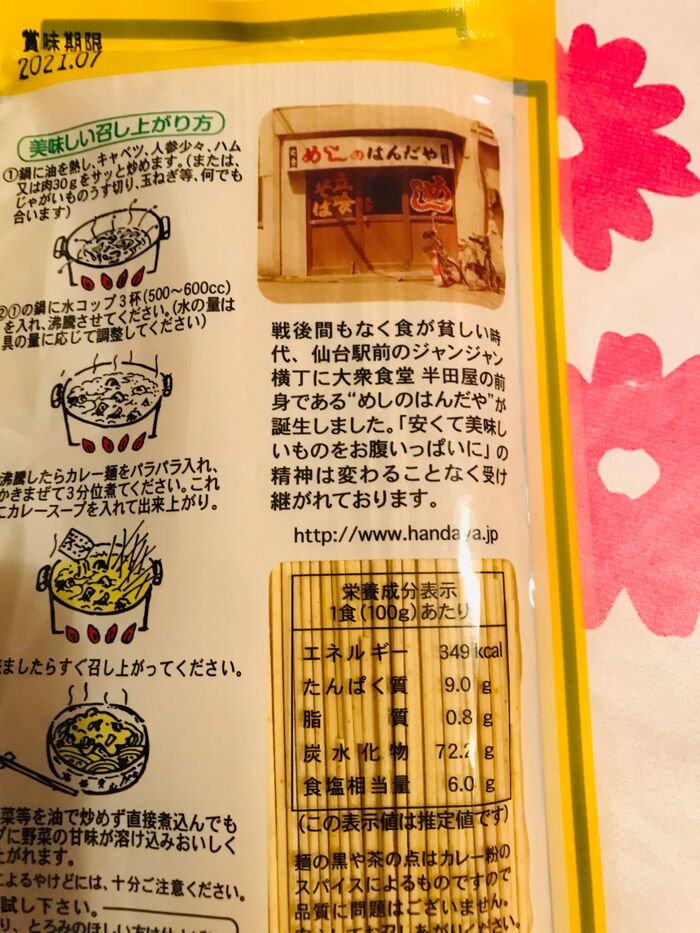 賞味期限
2021.07
美味しい召し上がり方
①鍋に油を熱し、キャベツ、人参少々、ハム
又は肉30gをサッと炒めます。(または、
じゃがいものうす切り、玉ねぎ等、何でも
合います)
②①の鍋に水コップ3杯(500〜600cc)
を入れ、沸騰させてください。(水の量は
具の量に応じて調整してください)
沸騰したらカレー麺をパラパラ入れ、
かきまぜて3分位煮てください。これ
にカレースープを入れて出来上がり。
ましたらすぐ召し上がってください。
菜等を油で炒めず直接煮込んでも
プに野菜の甘味が溶け込みおいしく
上がれます。
によるやけどには、十分ご注意ください。
試し下さい。
り、とろみのほしい方は
めしのはんだや
戦後間もなく食が貧しい時
代、仙台駅前のジャンジャン
横丁に大衆食堂 半田屋の前
身である“めしのはんだや”が
誕生しました。「安くて美味し
いものをお腹いっぱいに」の
精神は変わることなく受け
継がれております。
http://www.handaya.jp
栄養成分表示
1食(100g)あたり
エネルギー 349 kcal
たんぱく質 9.0 g
脂質 0.8 g
炭水化物 72.2 g
食塩相当量 6.0 g
(この表示値は推定値です)
麺の黒や茶の点はカレー粉の
スパイスによるものですので
品質に問題はございません。
してお召しあがりください。